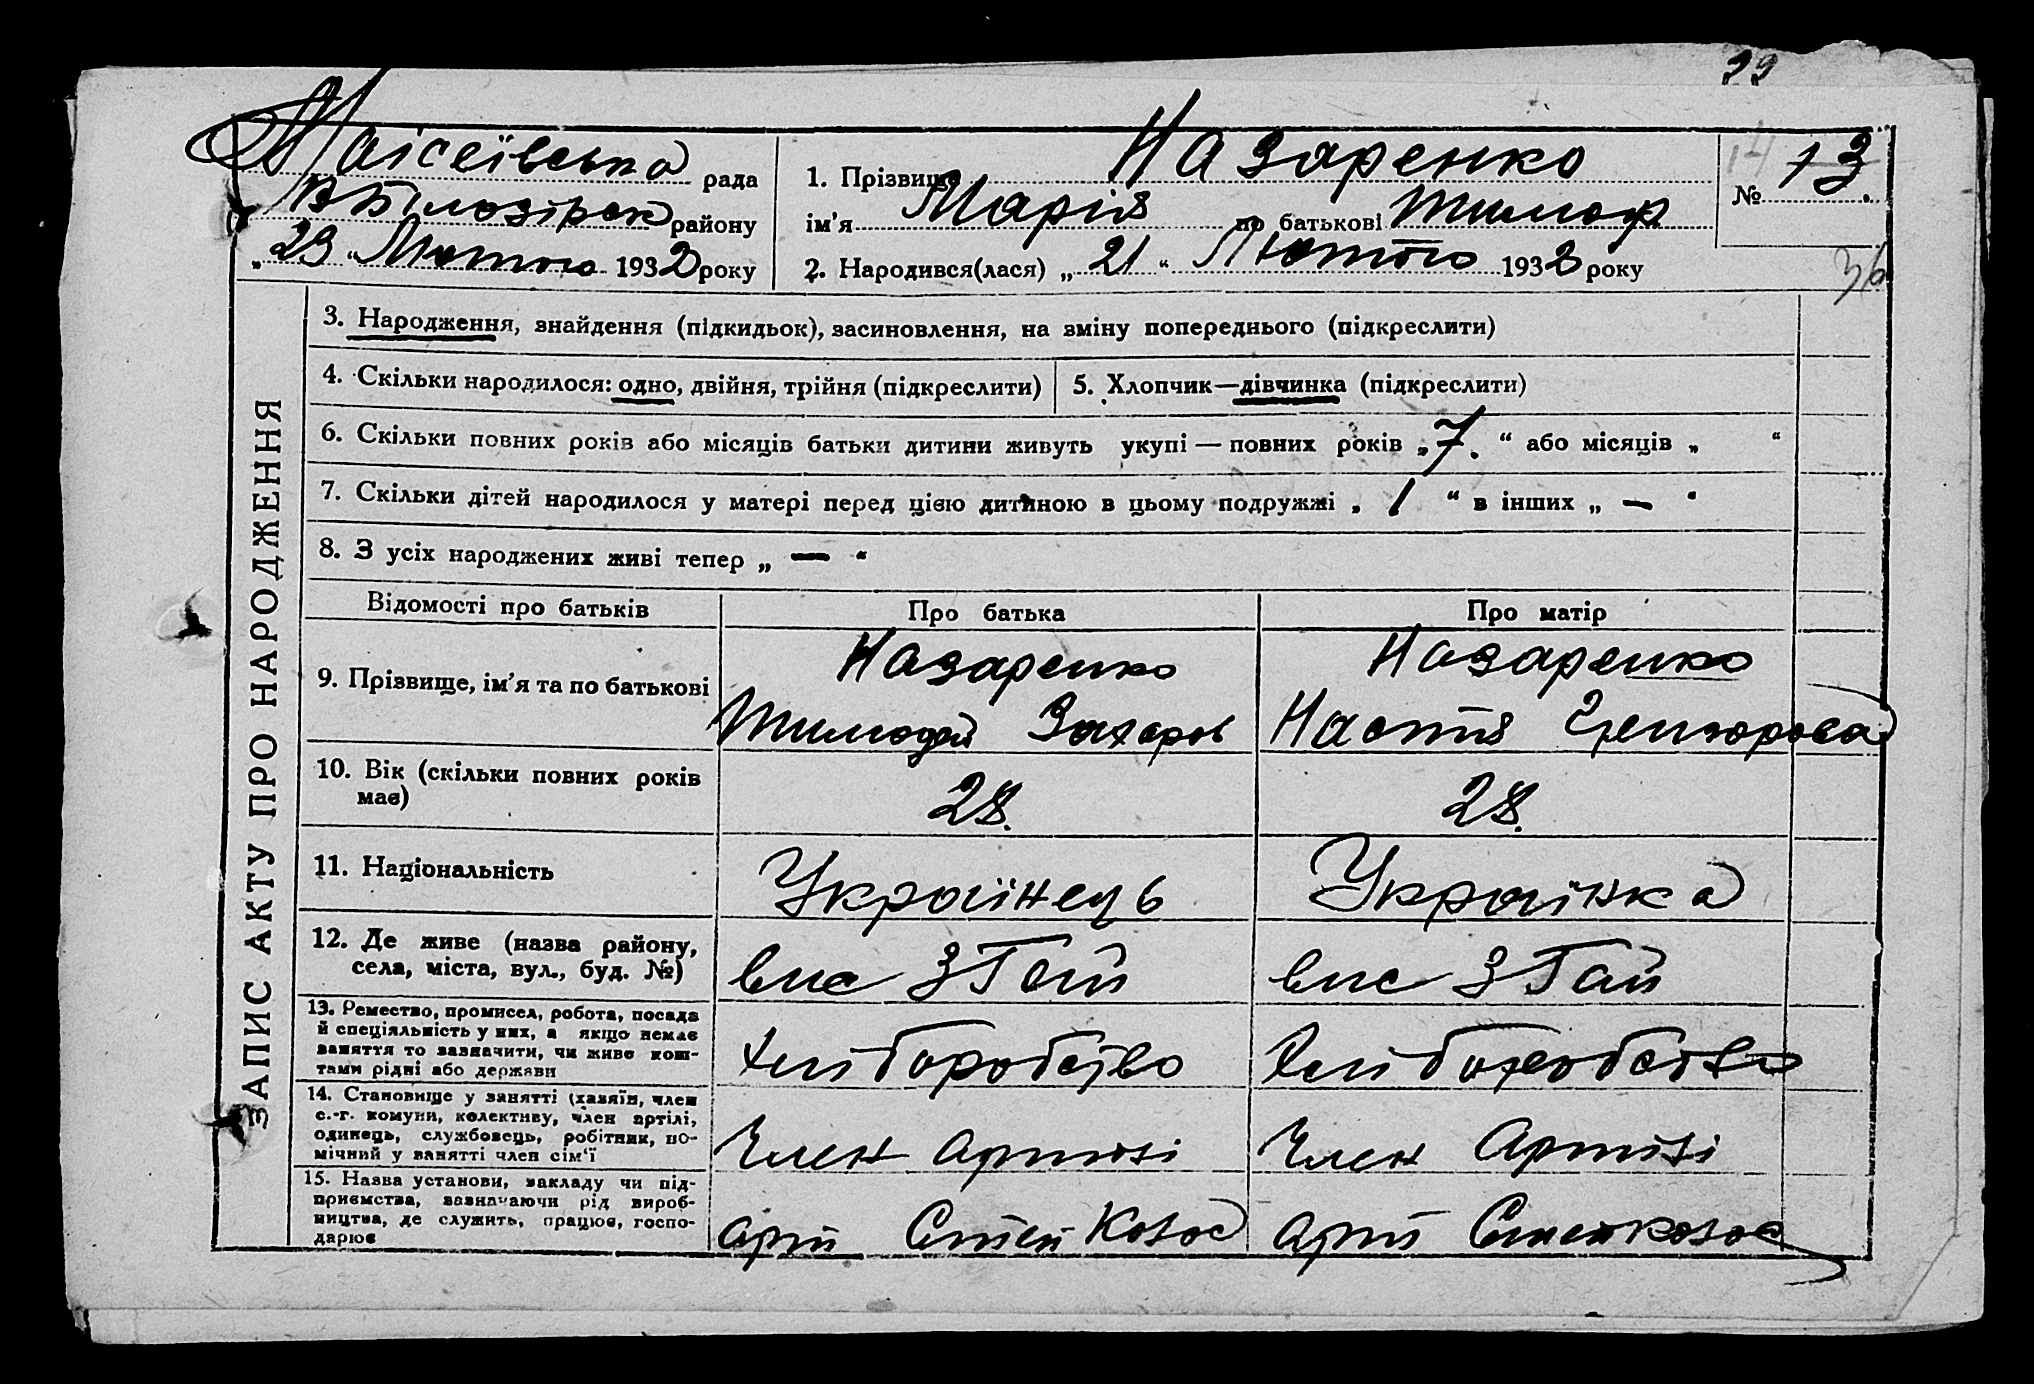 29
Моісеївська рада
В Білозірськ району
„23“ Лютого 1932 року
1. Прізвище Назаренко
ім'я Марія по батькові Тимоф
2. Народився(лася) „21“ Лютого 1932 року
14
№ 13.
36
ЗАПИС АКТУ ПРО НАРОДЖЕННЯ
3. Народження, знайдення (підкидьок), засиновлення, на зміну попереднього (підкреслити)
4. Скільки народилося: одно, двійня, трійня (підкреслити)
5. Хлопчик—дівчинка (підкреслити)
6. Скільки повних років або місяців батьки дитини живуть укупі — повних років „7.“ або місяців „ “
7. Скільки дітей народилося у матері перед цією дитиною в цьому подружжі „1“ в інших „—“
8. З усіх народжених живі тепер „—“
Відомості про батьків
Про батька
Про матір
9. Прізвище, ім'я та по батькові
Назаренко
Тимофей Захаров
Назаренко
Настя Григорова
10. Вік (скільки повних років
має)
28.
28.
11. Національність
Українець
Українка
12. Де живе (назва району,
села, міста, вул., буд. №)
вис З Гай
вис З Гай
13. Ремество, промисел, робота, посада
й спеціяльність у них, а якщо немає
заняття то зазначити, чи живе кош-
тами рідні або держави
Хліборобство
Хліборобство
14. Становище у занятті (хазяїн, член
с.-г. комуни, колективу, член артілі,
одинець, службовець, робітник, по-
мічний у занятті член сім'ї
Член артілі
Член Артілі
15. Назва установи, закладу чи під-
приємства, зазначаючи рід вироб-
ництва, де служить, працює, госпо-
дарює
арт Степ Колос
арт Степ колос